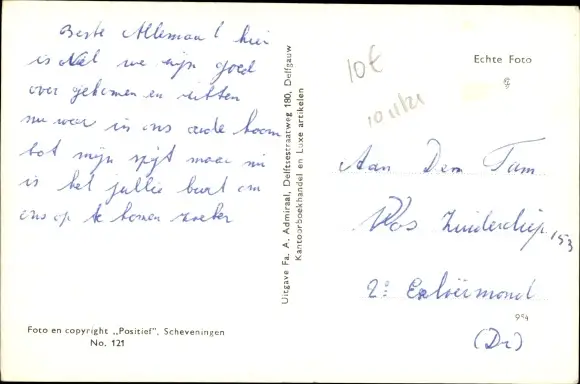 Beste Alleman! hier
is Nel we zijn goed
over gekomen en zitten
nu weer in ons oude boom
bot mijn spijt maar nu
is het jullie burt om
ons op te komen zoeken
Uitgave Fa. A. Admiraal, Delftsestraatweg 180, Delfgauw
Kantoorboekhandel en Luxe artikelen
Foto en copyright „Positief", Scheveningen
No. 121
10€
1011121
Echte Foto
Aan Dem Fam
Kos Zuiderdiep 153
2e Exloërmond
954
(Dr)